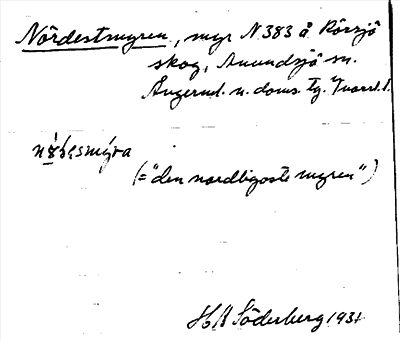 Nördestmyren, myr N 383 å Rörsjö
skog, Anundsjö sn.
Ångerml. n. doms. tg.
(= "den nordligaste myren")
H B Söderberg 1931